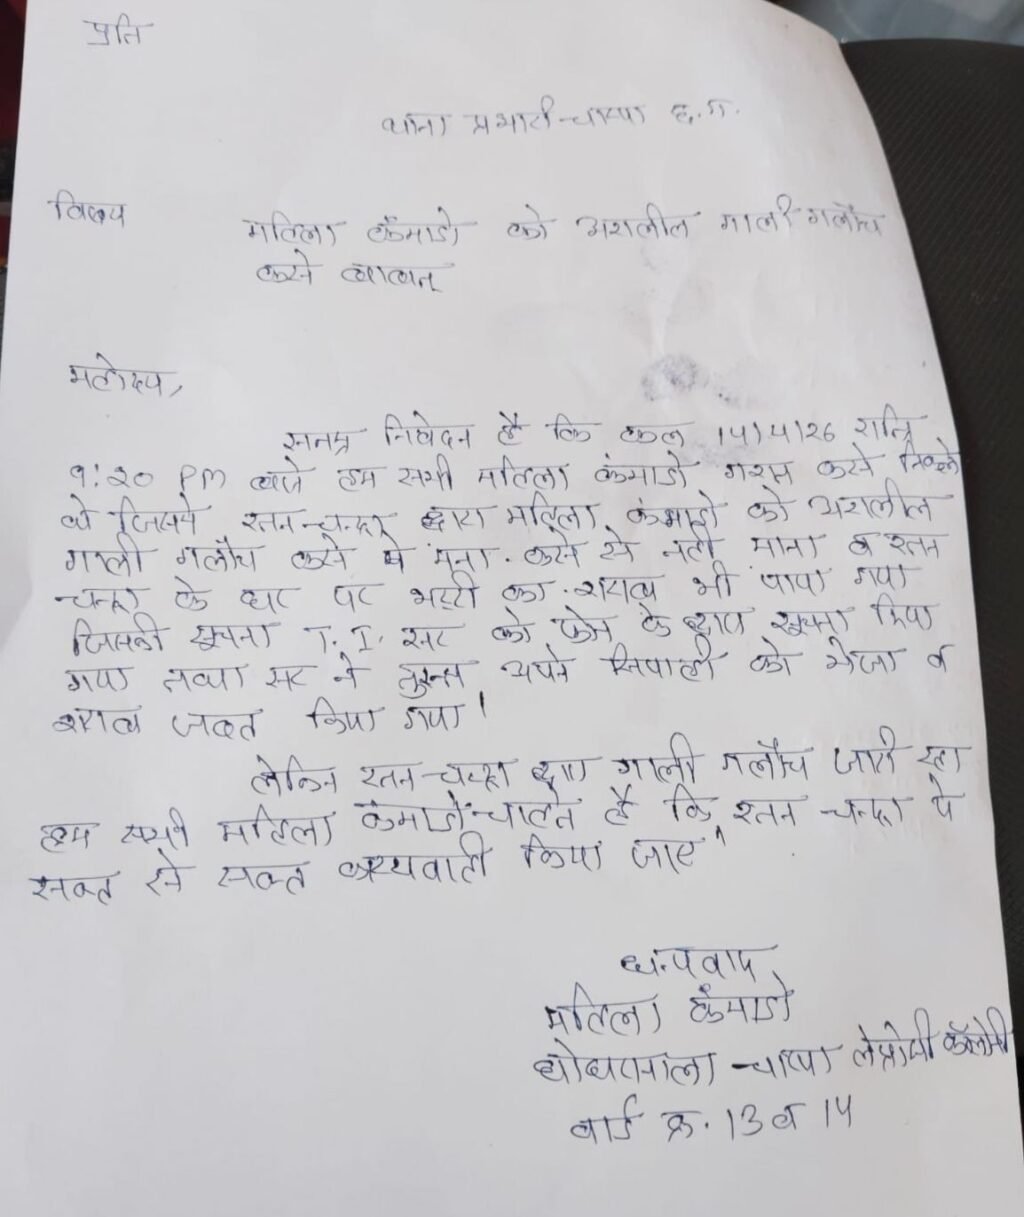 प्रति
थाना प्रभारी चाम्पा छ.ग.
विषय
महिला कंमाडो को अशलील गाली गलौच
करने बाबत्
महोदय,
सनम्र निवेदन है कि कल 14/4/26 रात्रि
9:20 PM बजे हम सभी महिला कंमाडो गस्त करने निकले
थे जिसमे रतन चन्द्रा द्वारा महिला कंमाडो को अशलील
गाली गलौच करने पे मना करने से नही माना व रतन
चन्द्रा के घर पर भट्टी का शराब भी पाया गया
जिसकी सूचना T.I. सर को फोन के द्वारा सूचना दिया
गया तथा सर ने तुरन्त अपने सिपाही को भेजा व
शराब जब्त किया गया।
लेकिन रतन चन्द्रा द्वारा गाली गलौच जारी रहा
हम सभी महिला कंमाडो चाहते है कि रतन चन्द्रा पे
सक्त से सक्त कार्यवाही किया जाए।
धन्यवाद
महिला कंमाडो
घोघरानाला चाम्पा लेप्रोसी कॅलोनी
वार्ड क्र. 13 व 14